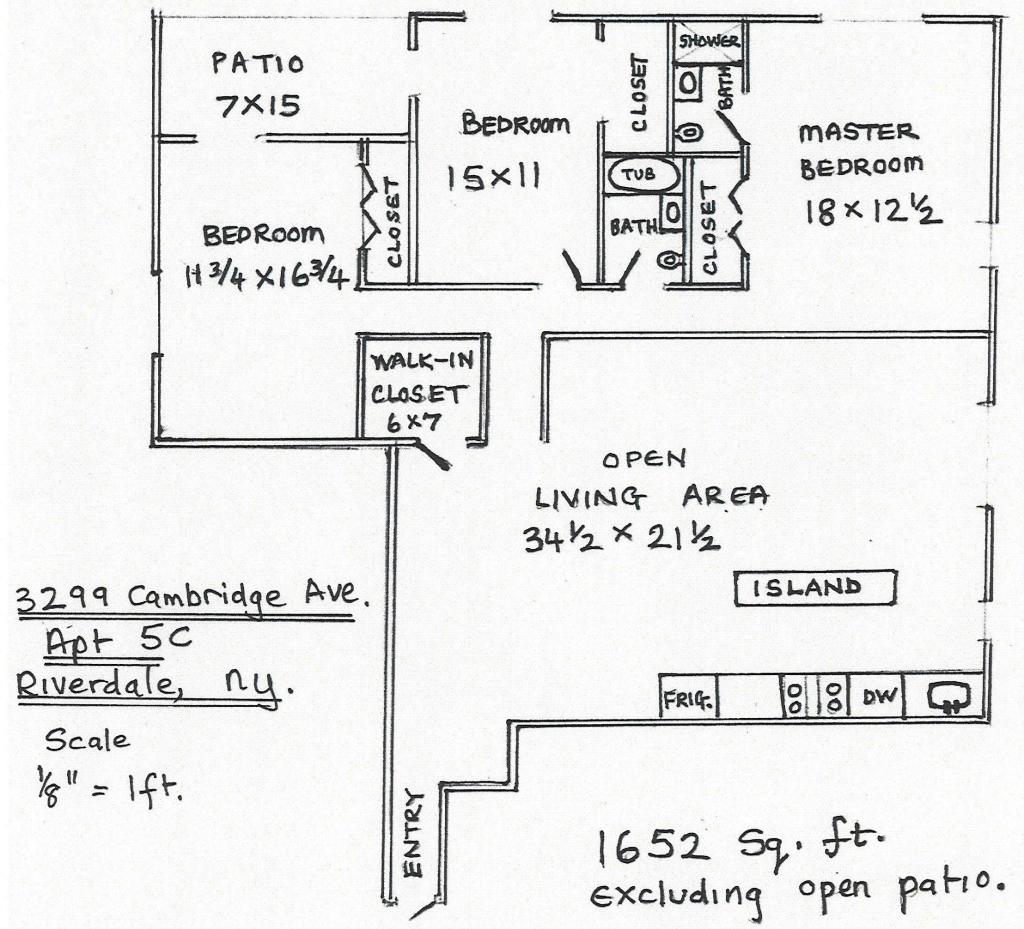 PATIO
7X15
BEDROOM
11 3/4 X 16 3/4
CLOSET
BEDROOM
15X11
CLOSET
SHOWER
BATH
TUB
BATH
CLOSET
MASTER
BEDROOM
18 X 12 1/2
WALK-IN
CLOSET
6X7
OPEN
LIVING AREA
34 1/2 X 21 1/2
ISLAND
FRIG.
DW
ENTRY
3299 Cambridge Ave.
Apt 5C
Riverdale, ny.
Scale
1/8" = 1ft.
1652 Sq. ft.
excluding open patio.